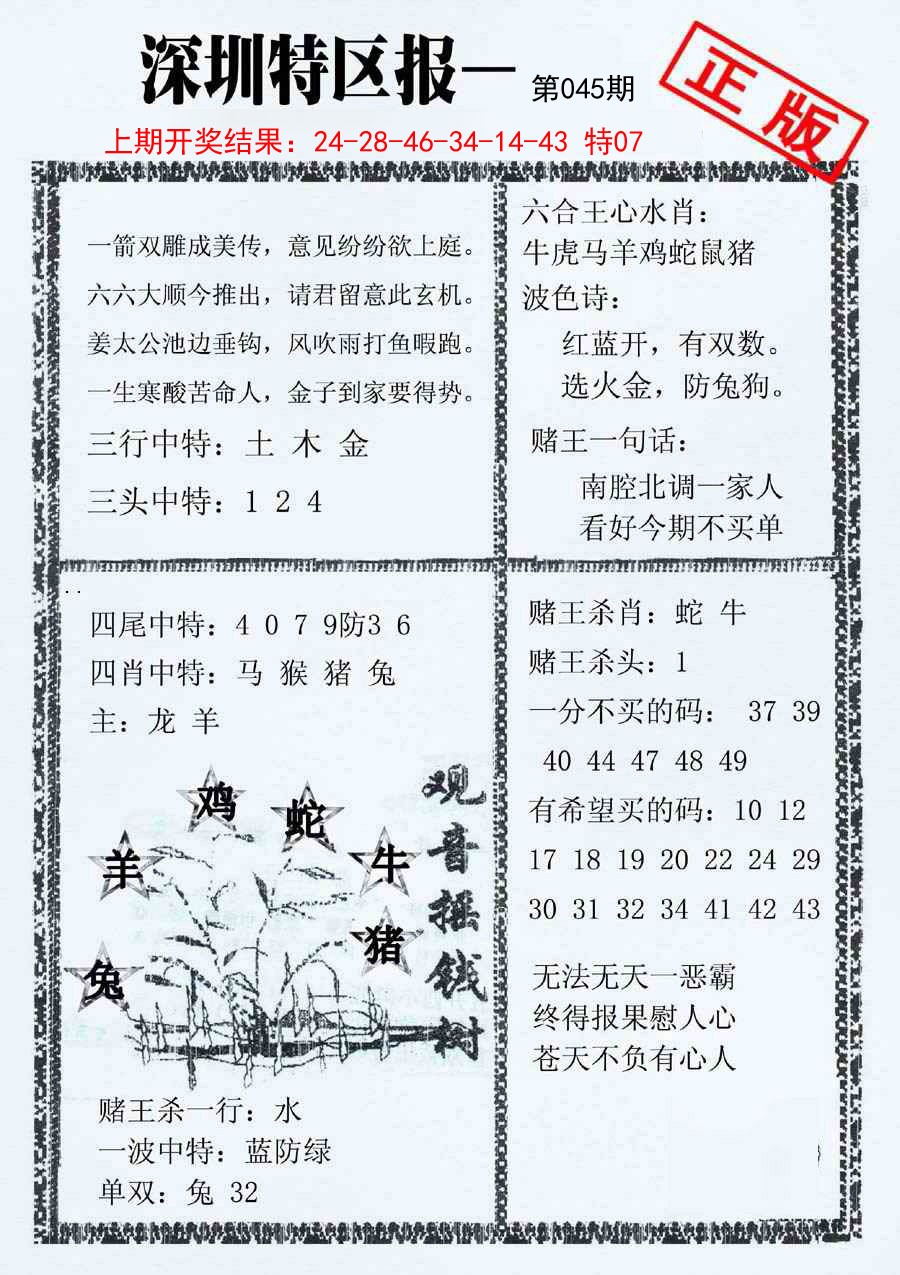 深圳特区报一 第045期
正版
上期开奖结果：24-28-46-34-14-43 特07
一箭双雕成美传，意见纷纷欲上庭。
六六大顺今推出，请君留意此玄机。
姜太公池边垂钩，风吹雨打鱼暇跑。
一生寒酸苦命人，金子到家要得势。
三行中特：土 木 金
三头中特：1 2 4
六合王心水肖：
牛虎马羊鸡蛇鼠猪
波色诗：
红蓝开，有双数。
选火金，防兔狗。
赌王一句话：
南腔北调一家人
看好今期不买单
四尾中特：4 0 7 9防3 6
四肖中特：马 猴 猪 兔
主：龙 羊
鸡
蛇
羊
牛
猪
兔
观音摇钱树
赌王杀一行：水
一波中特：蓝防绿
单双：兔 32
赌王杀肖：蛇 牛
赌王杀头：1
一分不买的码： 37 39
40 44 47 48 49
有希望买的码：10 12
17 18 19 20 22 24 29
30 31 32 34 41 42 43
无法无天一恶霸
终得报果慰人心
苍天不负有心人